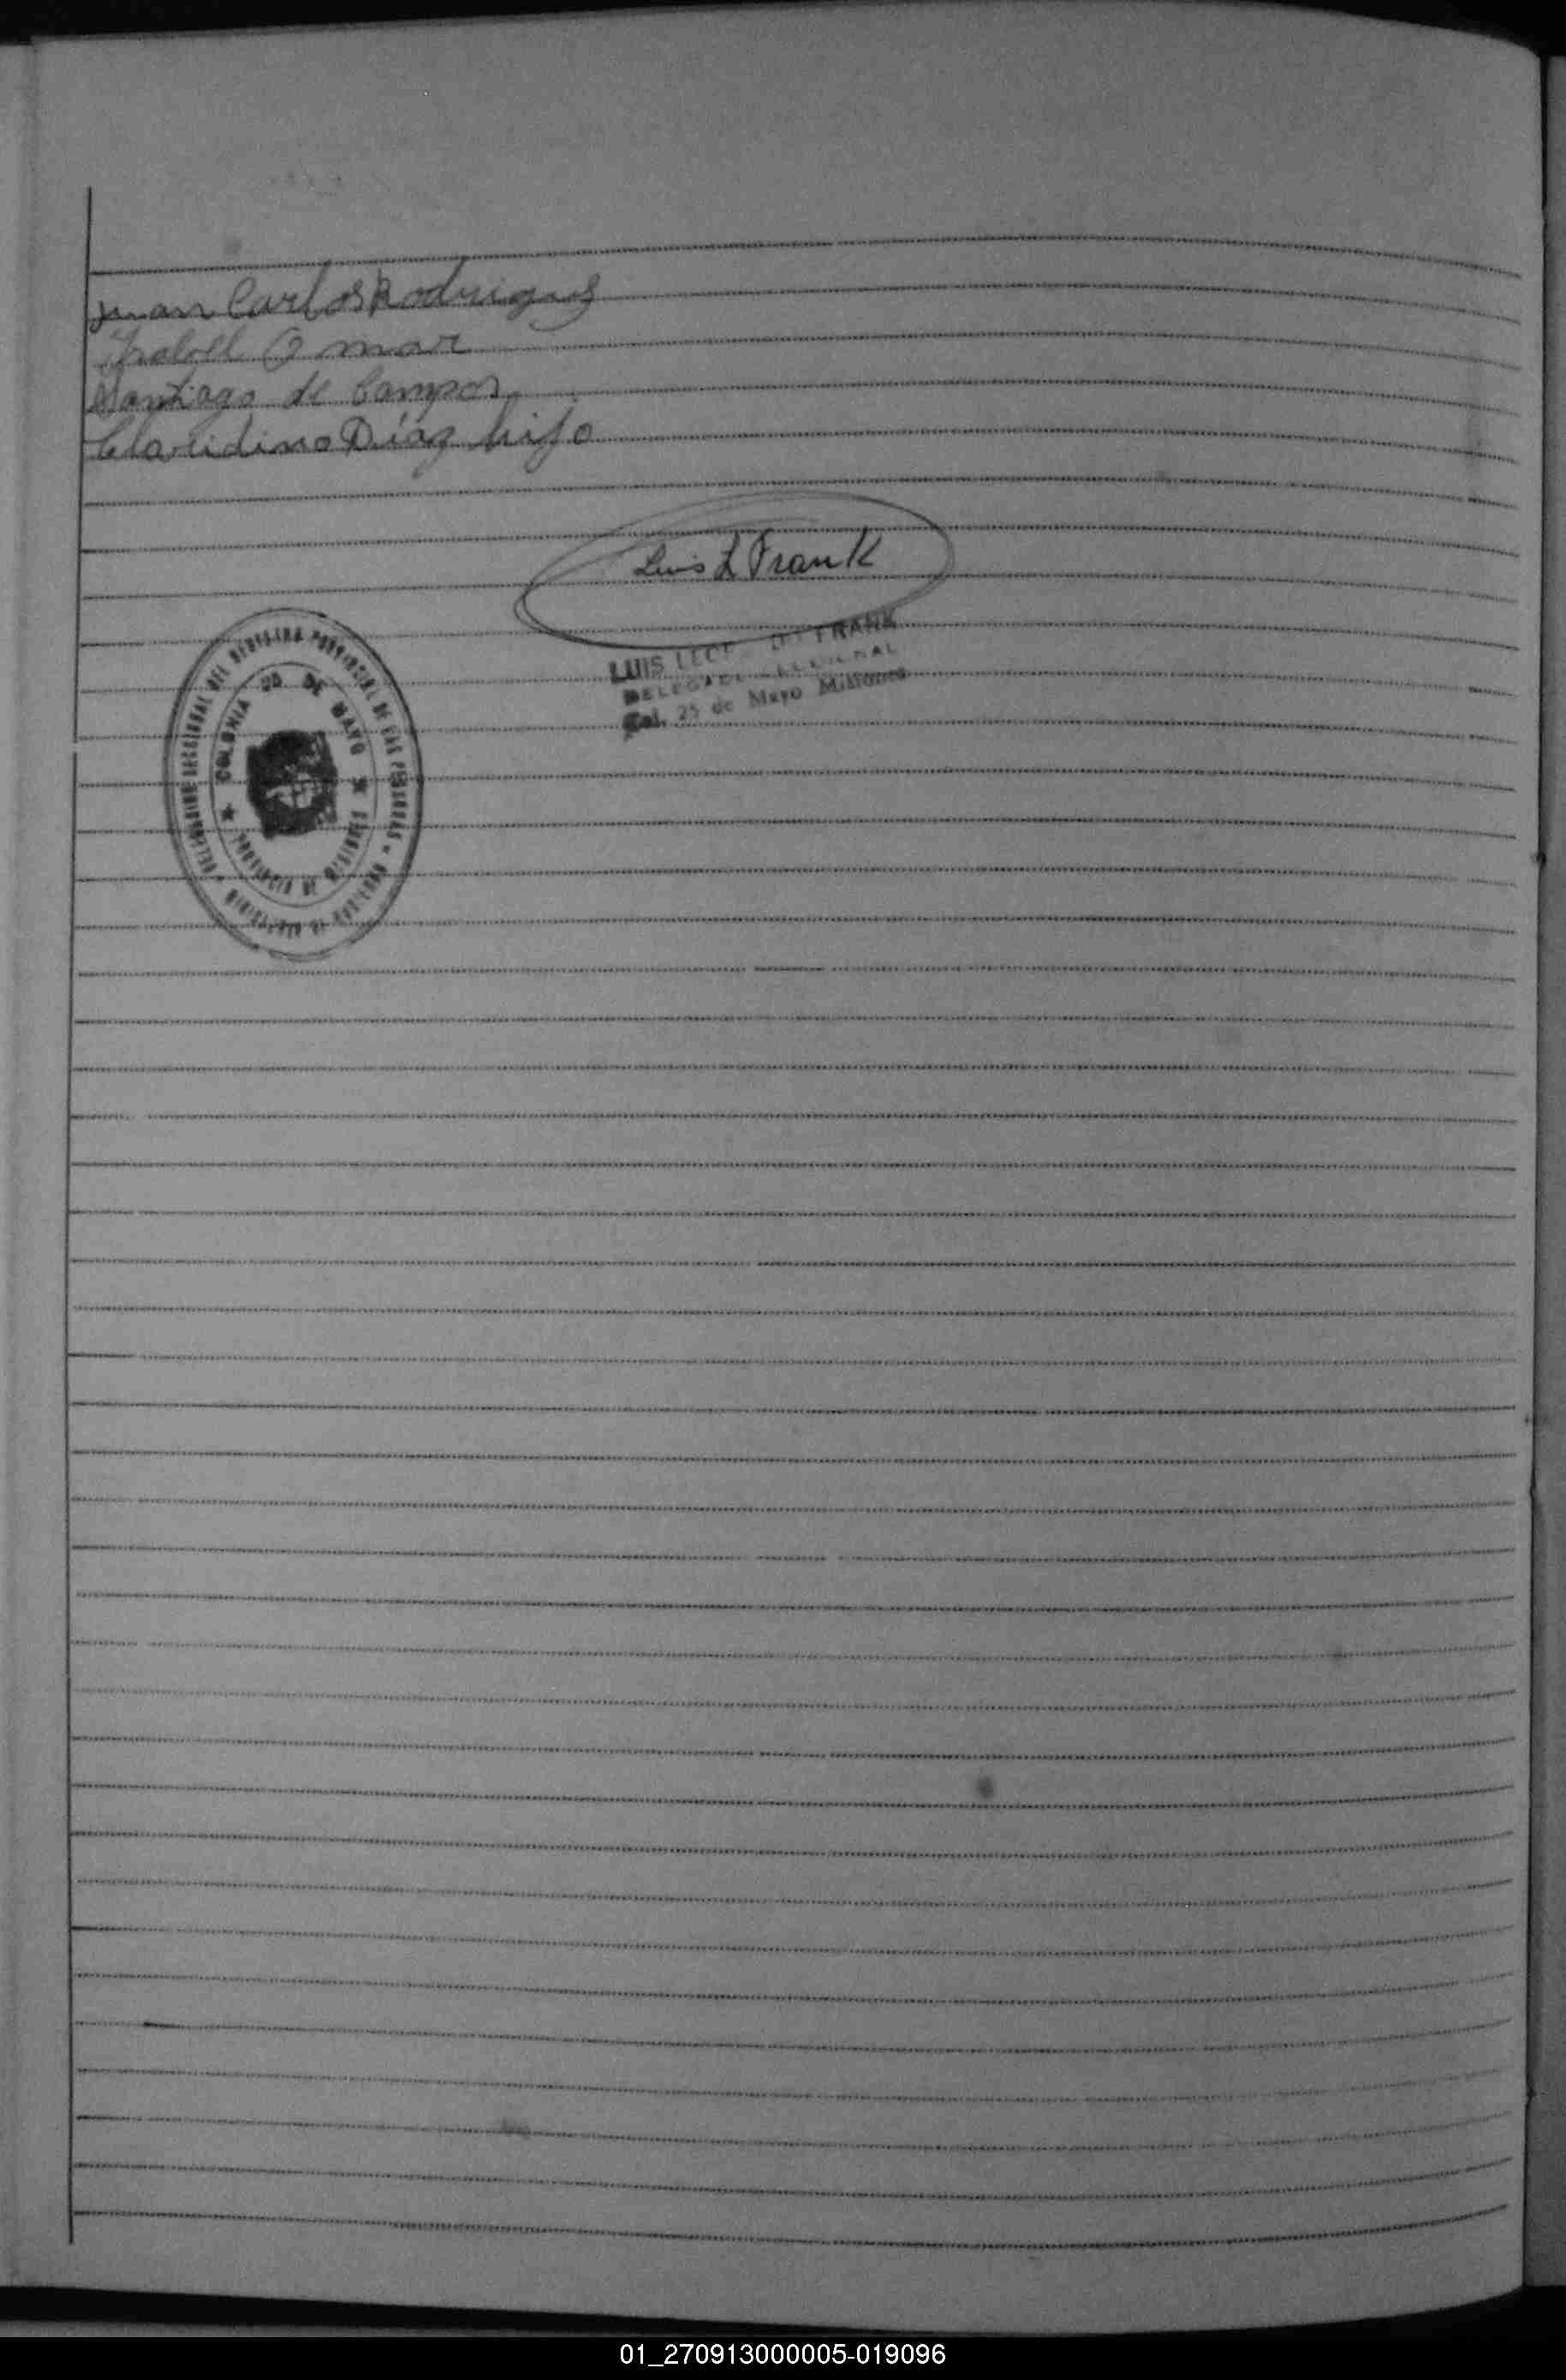 Juan Carlos Rodrigues
Isabel O mar
Santiago de Campos
Claudino Díaz hijo
Luis L Frank
LUIS FRANK
DELEGADO SECCIONAL
Col. 25 de Mayo Misiones
SECCIONAL DEL REGISTRO PROVINCIAL DE LAS PERSONAS
COLONIA 25 DE MAYO
PROVINCIA DE MISIONES
01_270913000005-019096